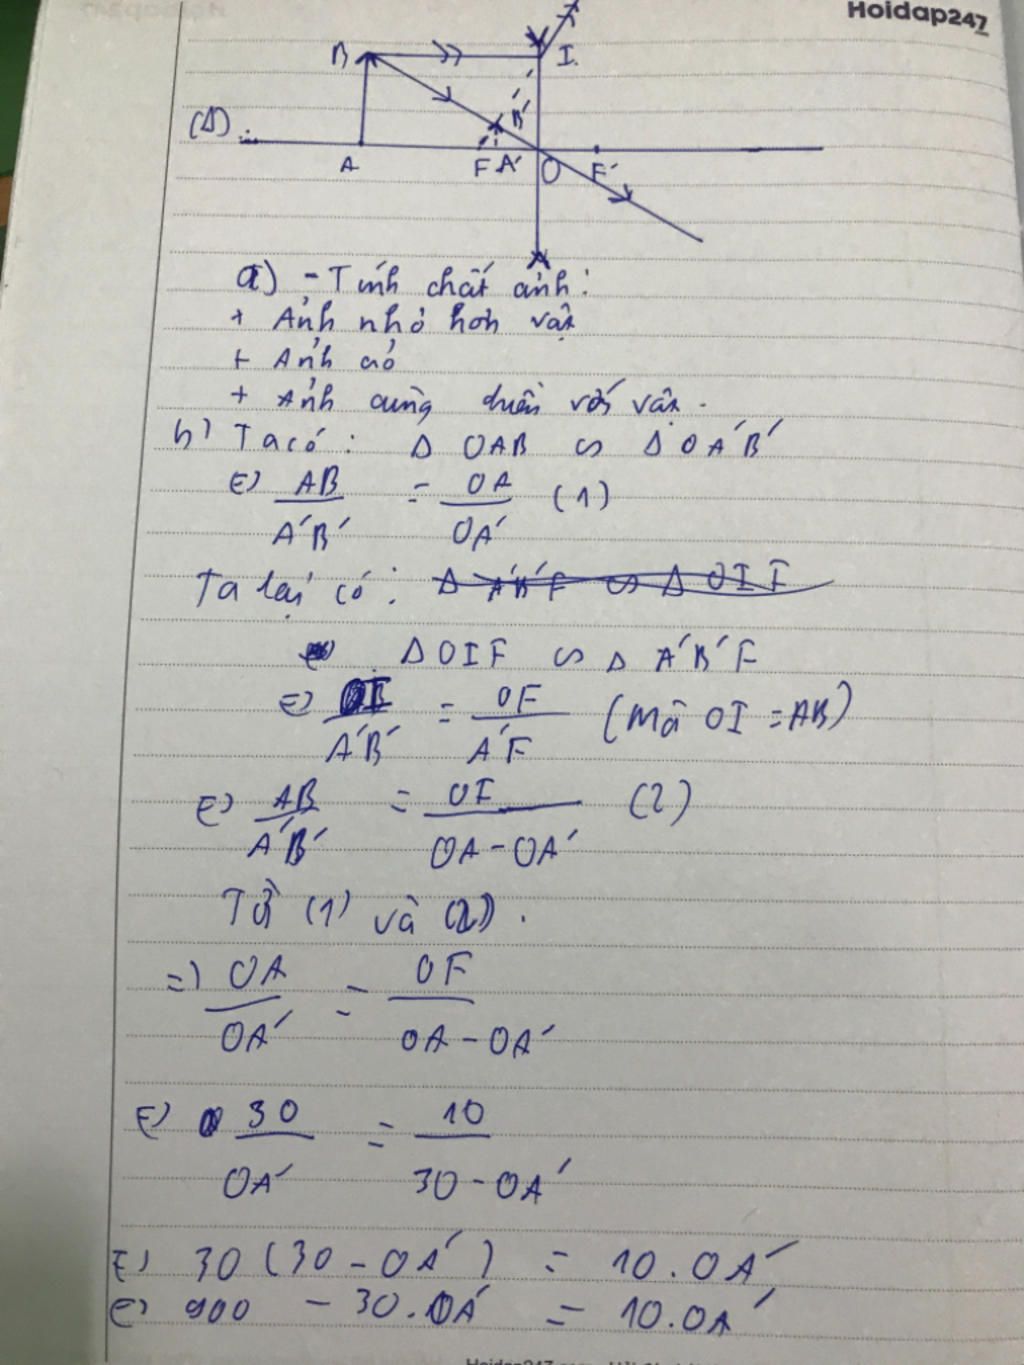 Hoidap247
B I.
B'
(Δ)
A F A' O F'
a) - Tính chất ảnh:
+ Ảnh nhỏ hơn vật
+ Ảnh ảo
+ Ảnh cùng chiều với vật.
b) Ta có: Δ OAB ∽ Δ OA'B'
(=) AB/A'B' = OA/OA' (1)
Ta lại có: Δ A'B'F ∽ Δ OIF
Δ OIF ∽ Δ A'B'F
(=) OI/A'B' = OF/A'F (Mà OI = AB)
(=) AB/A'B' = OF/OA - OA' (2)
Từ (1) và (2).
=) OA/OA' = OF/OA - OA'
(=) 30/OA' = 10/30 - OA'
(=) 30 (30 - OA') = 10.OA'
(=) 900 - 30.OA' = 10.OA'